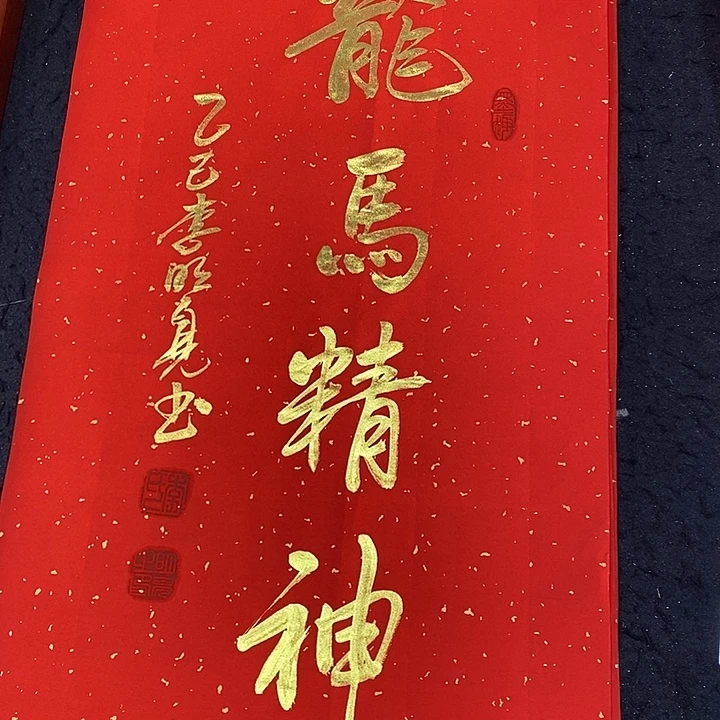 龍馬精神
乙巳李明見书